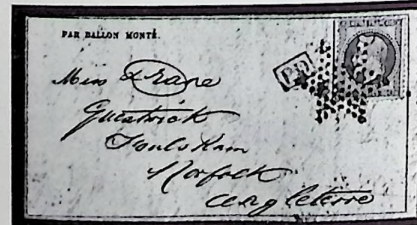 PAR BALLON MONTÉ.
PD
Miss Drane
Guestwick
Foulsham
Norfolk
Angleterre